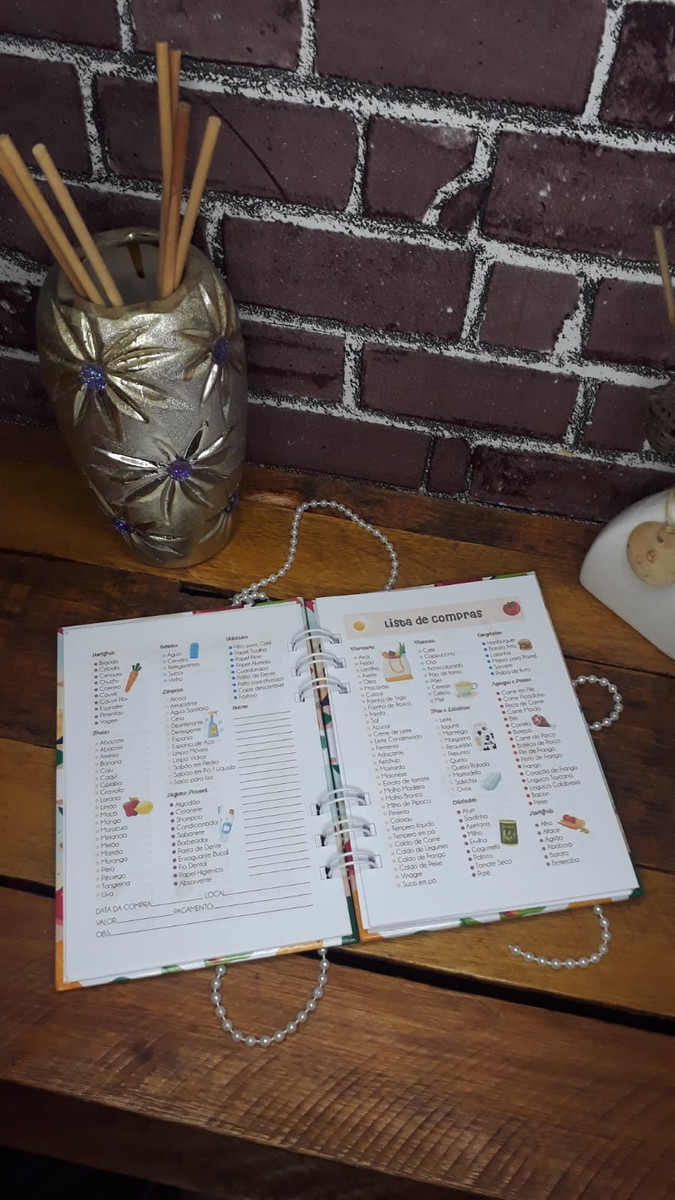 Hortifruti
Brócolis
Cebola
Cenoura
Chuchu
Coentro
Couve
Couve Flor
Espinafre
Pimentão
Vagem
Frutas
Abacate
Abacaxi
Ameixa
Banana
Caju
Caqui
Goiaba
Graviola
Laranja
Limão
Maçã
Manga
Maracujá
Melancia
Melão
Mamão
Morango
Pera
Pêssego
Tangerina
Uva
Bebidas
Água
Cerveja
Refrigerantes
Sucos
Vinho
Limpeza
Álcool
Amaciante
Água Sanitária
Cera
Desinfetante
Detergente
Esponja
Esponja de Aço
Limpa Móveis
Limpa Vidros
Sabão em Pedra
Sabão em Pó / Líquido
Saco para lixo
Higiene Pessoal
Algodão
Cotonete
Shampoo
Condicionador
Sabonete
Barbeador
Pasta de Dente
Enxaguante Bucal
Fio Dental
Papel Higiênico
Absorvente
Utilidades
Filtro para Café
Papel Toalha
Papel Filme
Papel Alumínio
Guardanapo
Palito de Dente
Palito para churrasco
Copos descartável
Fósforo
Outros
DATA DA COMPRA: LOCAL:
VALOR: PAGAMENTO:
OBS:
Lista de compras
Mercearia
Arroz
Feijão
Lentilha
Azeite
Óleo
Macarrão
Cuscuz
Farinha de Trigo
Farinha de Rosca
Farofa
Sal
Açúcar
Creme de Leite
Leite Condensado
Fermento
Adoçante
Ketchup
Mostarda
Maionese
Extrato de tomate
Molho Madeira
Molho Branco
Milho de Pipoca
Pimenta
Colorau
Tempero líquido
Tempero em pó
Caldo de Carne
Caldo de Legumes
Caldo de Frango
Caldo de Peixe
Vinagre
Suco em pó
Café
Cappuccino
Chá
Achocolatado
Pão de forma
Pães
Cereal
Mel
Frios e Laticínios
Leite
Iogurte
Manteiga
Margarina
Requeijão
Presunto
Queijo
Queijo Ralado
Mortadela
Salsicha
Ovos
Enlatados
Atum
Sardinha
Azeitona
Milho
Ervilha
Cogumelo
Palmito
Tomate Seco
Patê
Congelados
Hambúrguer
Batata Frita
Lasanha
Massa para Pastel
Sorvete
Polpa de fruta
Açougue e Peixes
Carne em Filé
Carne Picadinha
Peça de Carne
Carne Moída
Bife
Costela
Bisteca
Carne de Porco
Bisteca de Porco
Filé de Frango
Peito de Frango
Frango
Coração de Frango
Linguiça Toscana
Linguiça Calabresa
Bacon
Peixe
Hortifruti
Alho
Alface
Agrião
Abóbora
Batata
Beterraba